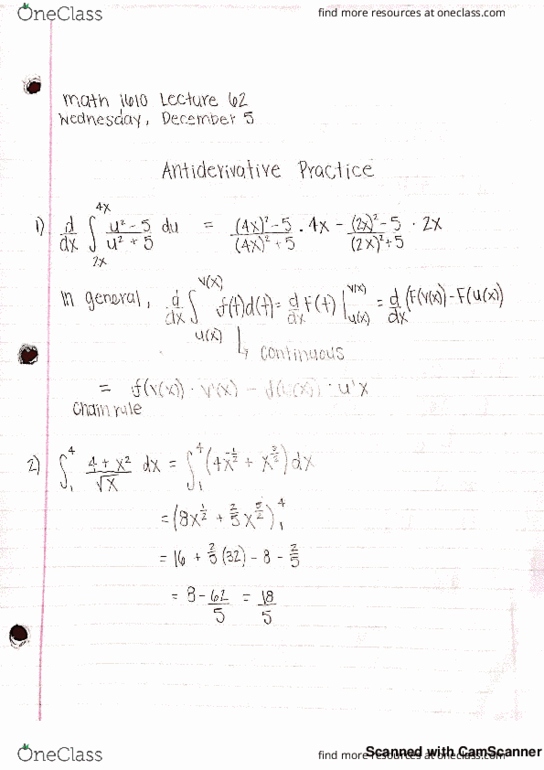 OneClass find more resources at oneclass.com
math 1610 Lecture 62
Wednesday, December 5
Antiderivative Practice
1) d/dx ∫_{2x}^{4x} (u² - 5)/(u² + 5) du = ((4x)² - 5)/((4x)² + 5) · 4x - ((2x)² - 5)/((2x)² + 5) · 2x
In general, d/dx ∫_{u(x)}^{v(x)} f(t)d(t) = d/dx F(t) |_{u(x)}^{v(x)} = d/dx (F(v(x)) - F(u(x))
↳ continuous
= f(v(x)) · v'(x) - f(u(x)) · u'x
Chain rule
2) ∫_1^4 (4 + x²)/√x dx = ∫_1^4 (4x^{-1/2} + x^{3/2}) dx
= (8x^{1/2} + 2/5 x^{5/2})_1^4
= 16 + 2/5 (32) - 8 - 2/5
= 8 - 62/5 = 18/5
OneClass find more resources at oneclass.com
Scanned with CamScanner